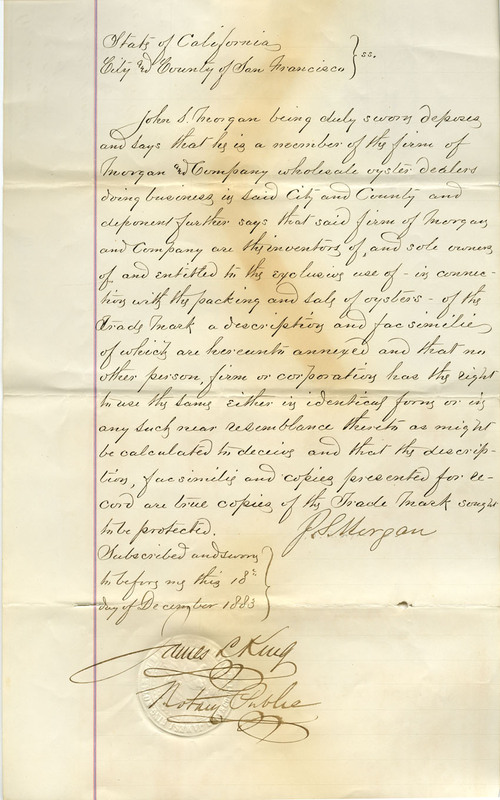 State of California
City and County of San Francisco } ss.
John S. Morgan being duly sworn deposes
and says that he is a member of the firm of
Morgan and Company wholesale oyster dealers
doing business in said City and County and
deponent further says that said firm of Morgan
and Company are the inventors of, and sole owners
of, and entitled to the exclusive use of - in connec-
tion with the packing and sale of oysters - of the
Trade Mark a description and facsimilie
of which are hereunto annexed and that no
other person, firm or corporation has the right
to use the same either in identical form or in
any such near resemblance thereto as might
be calculated to deceive and that the descrip-
tion, facsimilie and copies presented for re-
cord are true copies of the Trade Mark sought
to be protected.
J. S. Morgan
Subscribed and sworn
to before me this 18th
day of December 1883
James L. King
Notary Public